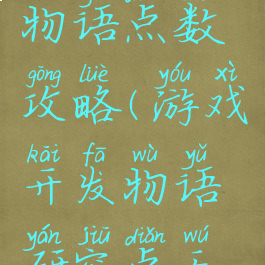 物语点数
gōng lüè yóu xì
攻略(游戏
kāi fā wù yǔ
开发物语
yán jiū diǎn wú
研究点无